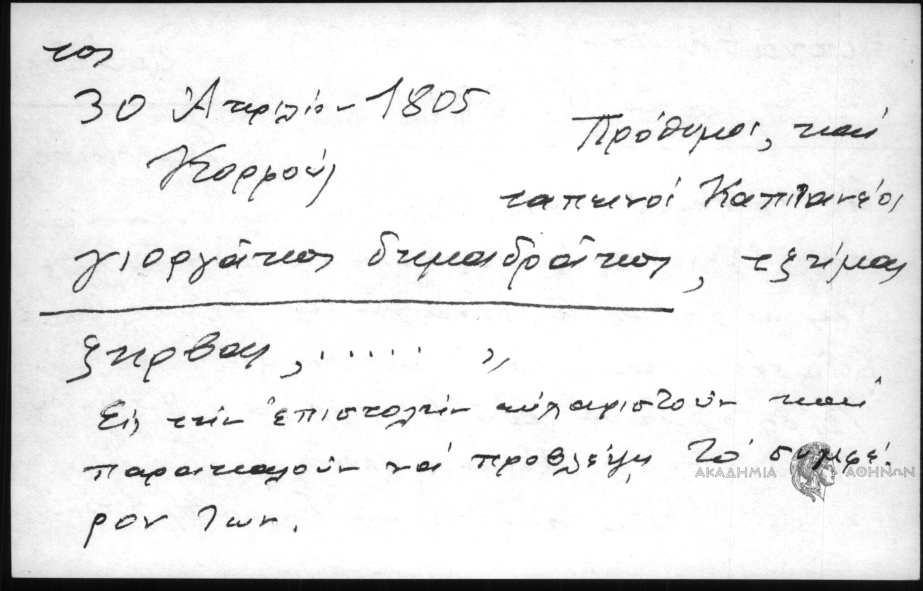 τος
30 Ἀπριλίου 1805
Κορφούς
Πρόθυμοι, καί
ταπεινοί Καπιτανέοι
γιοργάκης δημαδράκης,
Εἰς τήν ἐπιστολήν εὐχαριστοῦν καί
παρακαλοῦν νά προβλέψη τό συμφέ-
ρον των.
ΑΚΑΔΗΜΙΑ ΑΘΗΝΩΝ